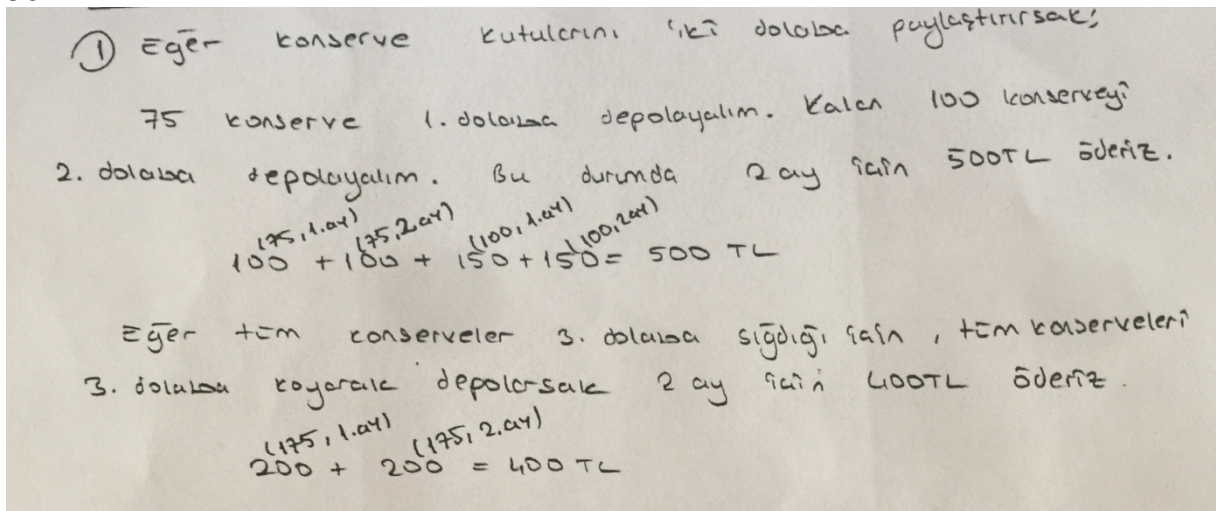 ① Eğer konserve kutularını iki dolaba paylaştırırsak;
75 konserve 1. dolaba depolayalım. Kalan 100 konserveyi
2. dolaba depolayalım. Bu durumda 2 ay için 500TL öderiz.
(75, 1.ay) (75, 2.ay) (100, 1.ay) (100, 2.ay)
100 + 100 + 150 + 150 = 500 TL
Eğer tüm konserveler 3. dolaba sığdığı için, tüm konserveleri
3. dolaba koyarak depolarsak 2 ay için 400TL öderiz.
(175, 1.ay) (175, 2.ay)
200 + 200 = 400 TL